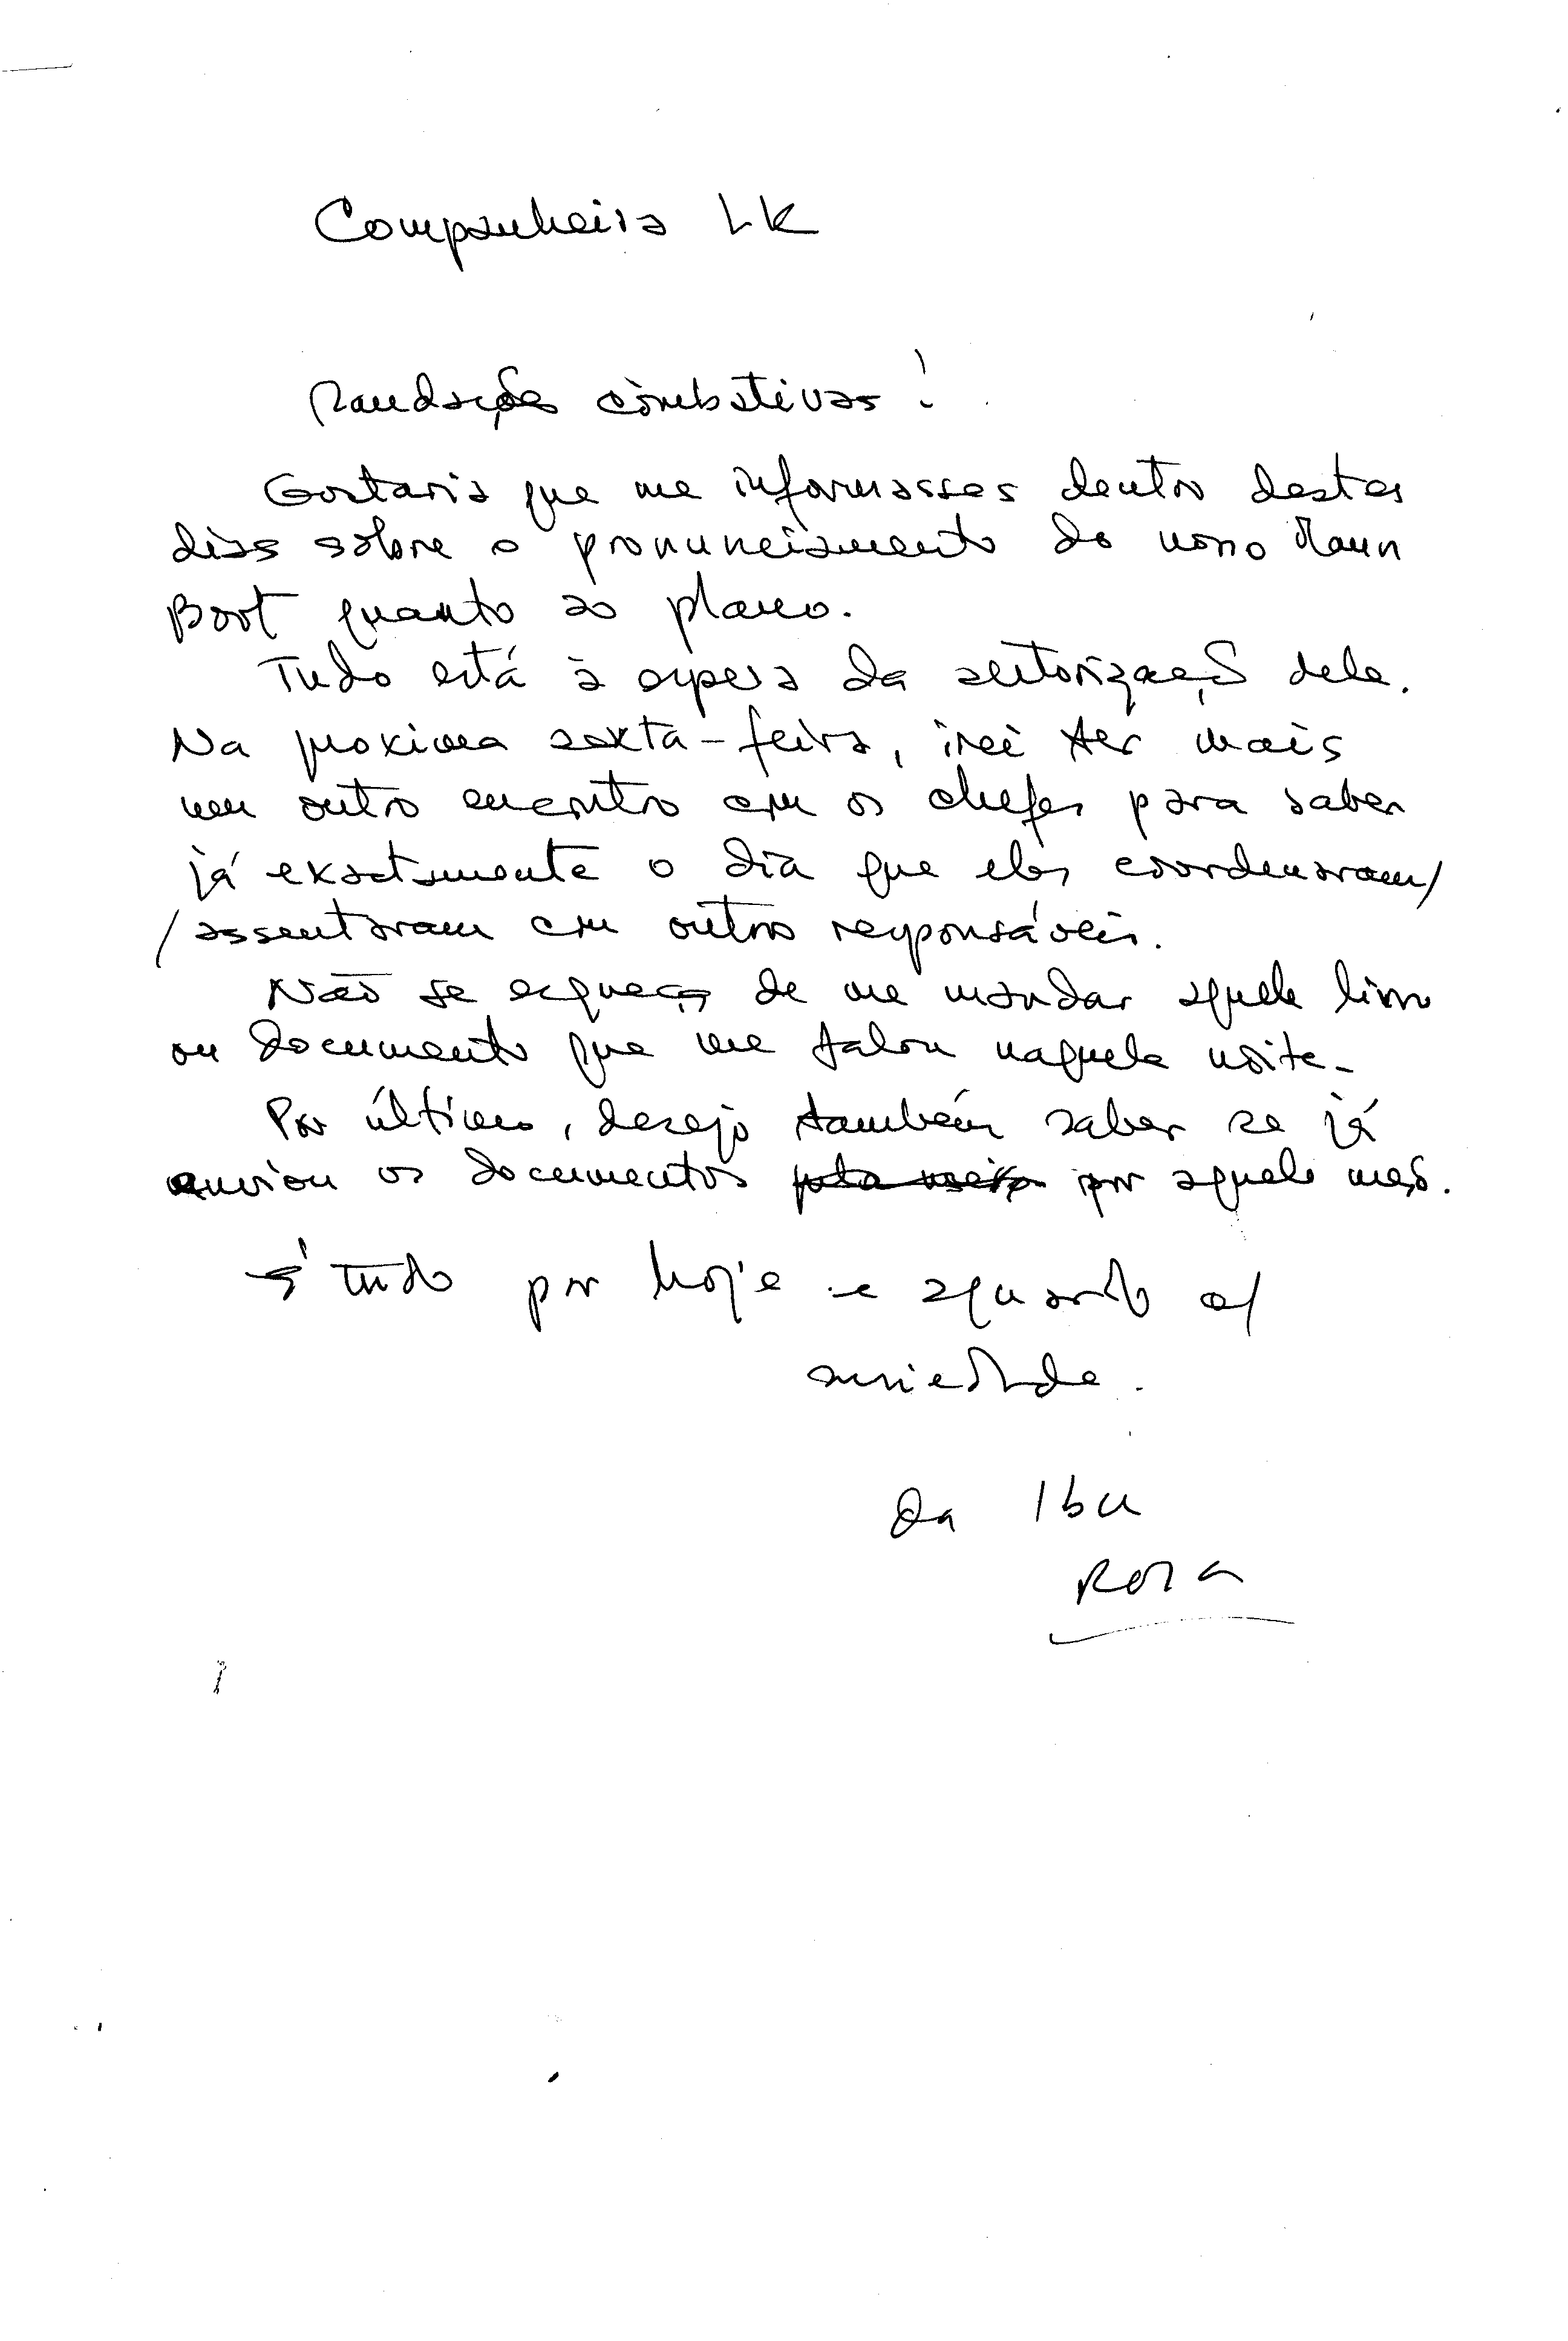 Companheira LK
Saudações combativas!
Gostaria que me informasses dentro destes
dias sobre o pronunciamento do nosso Maun
Boot quanto ao plano.
Tudo está à espera da autorização dele.
Na proxima sexta-feira, irei ter mais
um outro encontro com os chefes para saber
já exactamente o dia que eles coordenaram/
/assentaram com outros responsáveis.
Não se esqueça de me mandar aquele livro
ou documento que me falou naquela noite.
Por último, desejo também saber se já
enviou os documentos por aquele meio.
É tudo por hoje e aguardo c/
ansiedade.
Da Ibu
Rosa